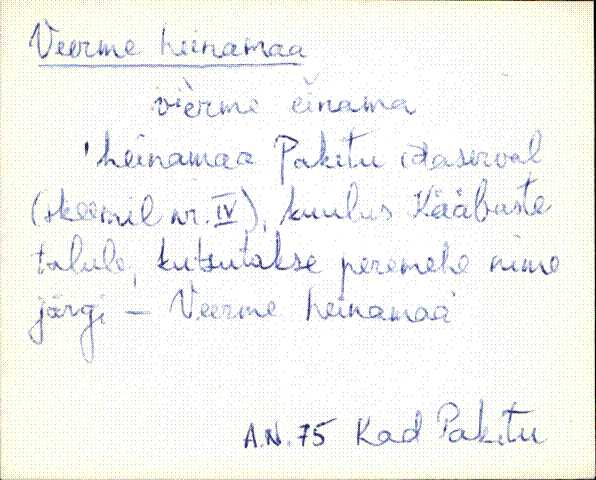 Veerme heinamaa
vièrme einama
'heinamaa Pakitu idaserval
(skeemil nr. IV), kuulus Kääbaste
talule, kutsutakse peremehe nime
järgi – Veerme heinamaa'
A.N. 75 Kad Pakitu